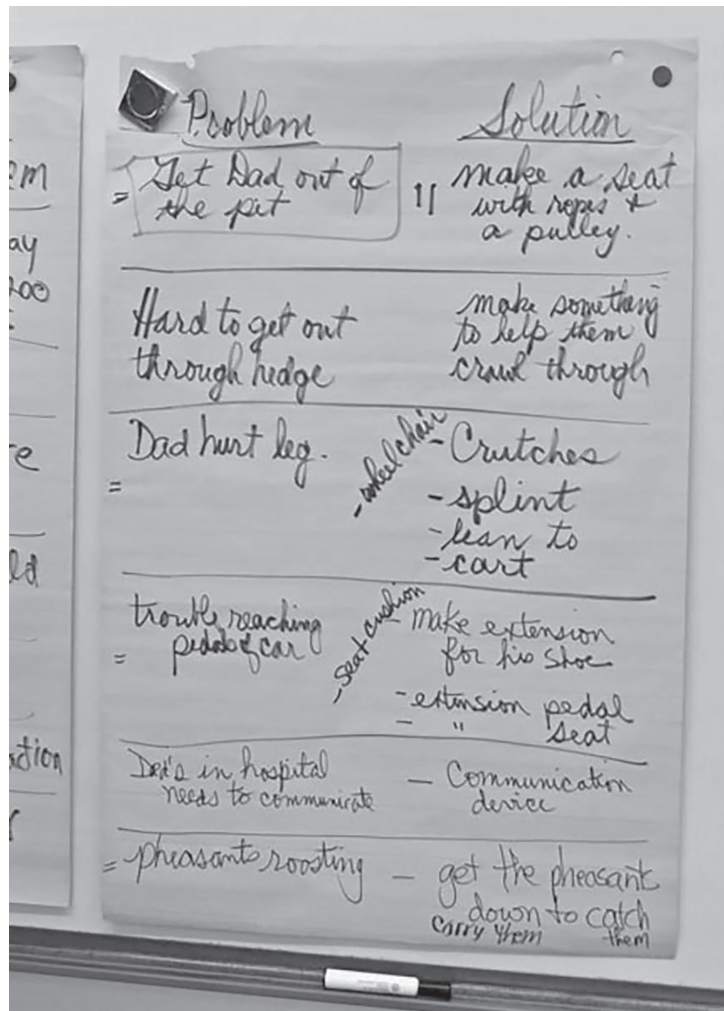 em
ay
200
e
ld
ction
Problem
Solution
= Get Dad out of
the pit
make a seat
with ropes +
a pulley.
Hard to get out
through hedge
make something
to help them
crawl through
Dad hurt leg.
=
- wheelchair
- Crutches
- splint
- lean to
- cart
trouble reaching
pedals of car
=
- seat cushion
- make extension
for his shoe
- extension pedal
- " seat
Dad's in hospital
needs to communicate
- Communication
device
= pheasants roosting
- get the pheasants
down to catch
them
carry them